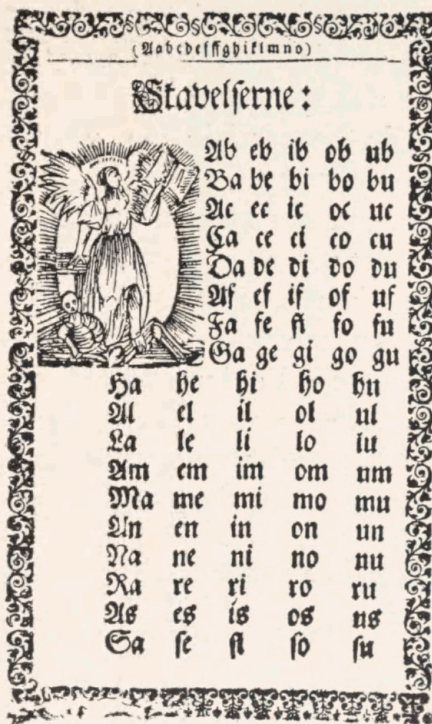 (Aabcdefſfghiklmno)
Stavelſerne:
Ab eb ib ob ub
Ba be bi bo bu
Ac ec ic oc uc
Ca ce ci co cu
Da de di do du
Af ef if of uf
Fa fe fi fo fu
Ga ge gi go gu
Ha he hi ho hu
Al el il ol ul
La le li lo lu
Am em im om um
Ma me mi mo mu
An en in on un
Na ne ni no nu
Ra re ri ro ru
As es is os us
Sa ſe ſi ſo ſu